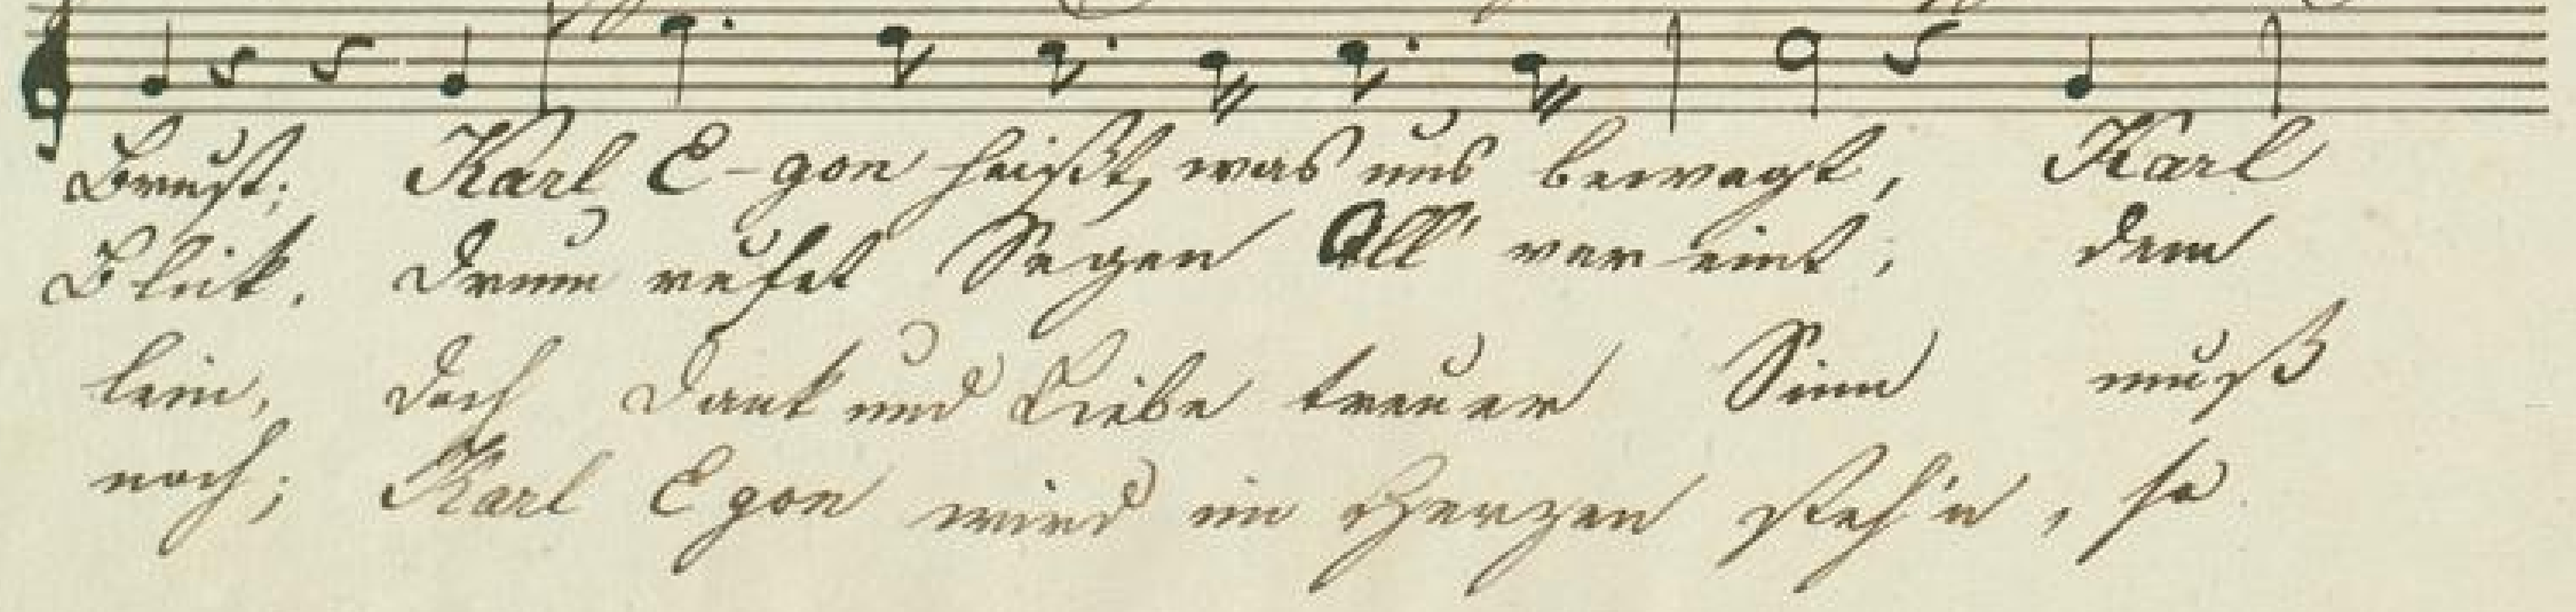 Brust; Karl E-gon heißt, was uns bewegt, Karl
Blick. Drum rufet Segen All' ver-eint; dem
lein, doch Dank und Liebe treuer Sinn muß
noch; Karl Egon wird im Herzen steh'n, so